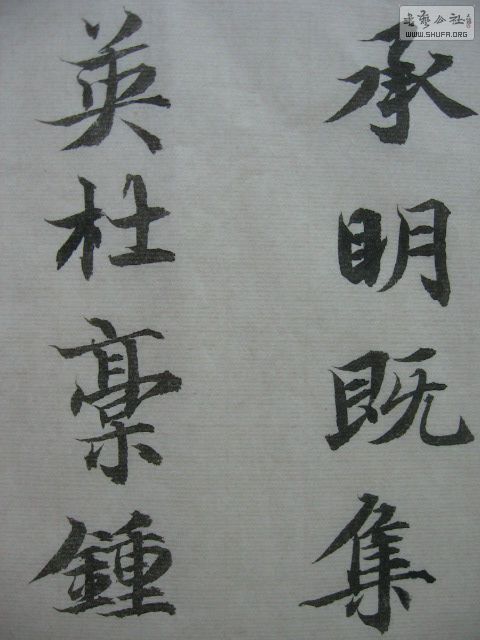 承明既集
英杜稾鍾
书艺公社
WWW.SHUFA.ORG